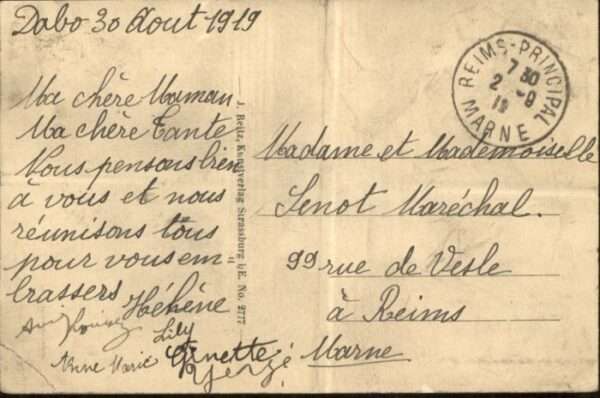 Dabo 30 Aout 1919
Ma chère Maman
Ma chère Tante
Nous pensons bien
à vous et nous
réunisons tous
pour vous em
brassers
Héhène
Lily
Anne Marie Ginette
J. Reitz, Kunstverlag Strassburg i/E. No. 2777
REIMS-PRINCIPAL
7 30
2 - 9
19
MARNE
Madame et Mademoiselle
Senot Maréchal.
99 rue de Vesle
à Reims
Marne